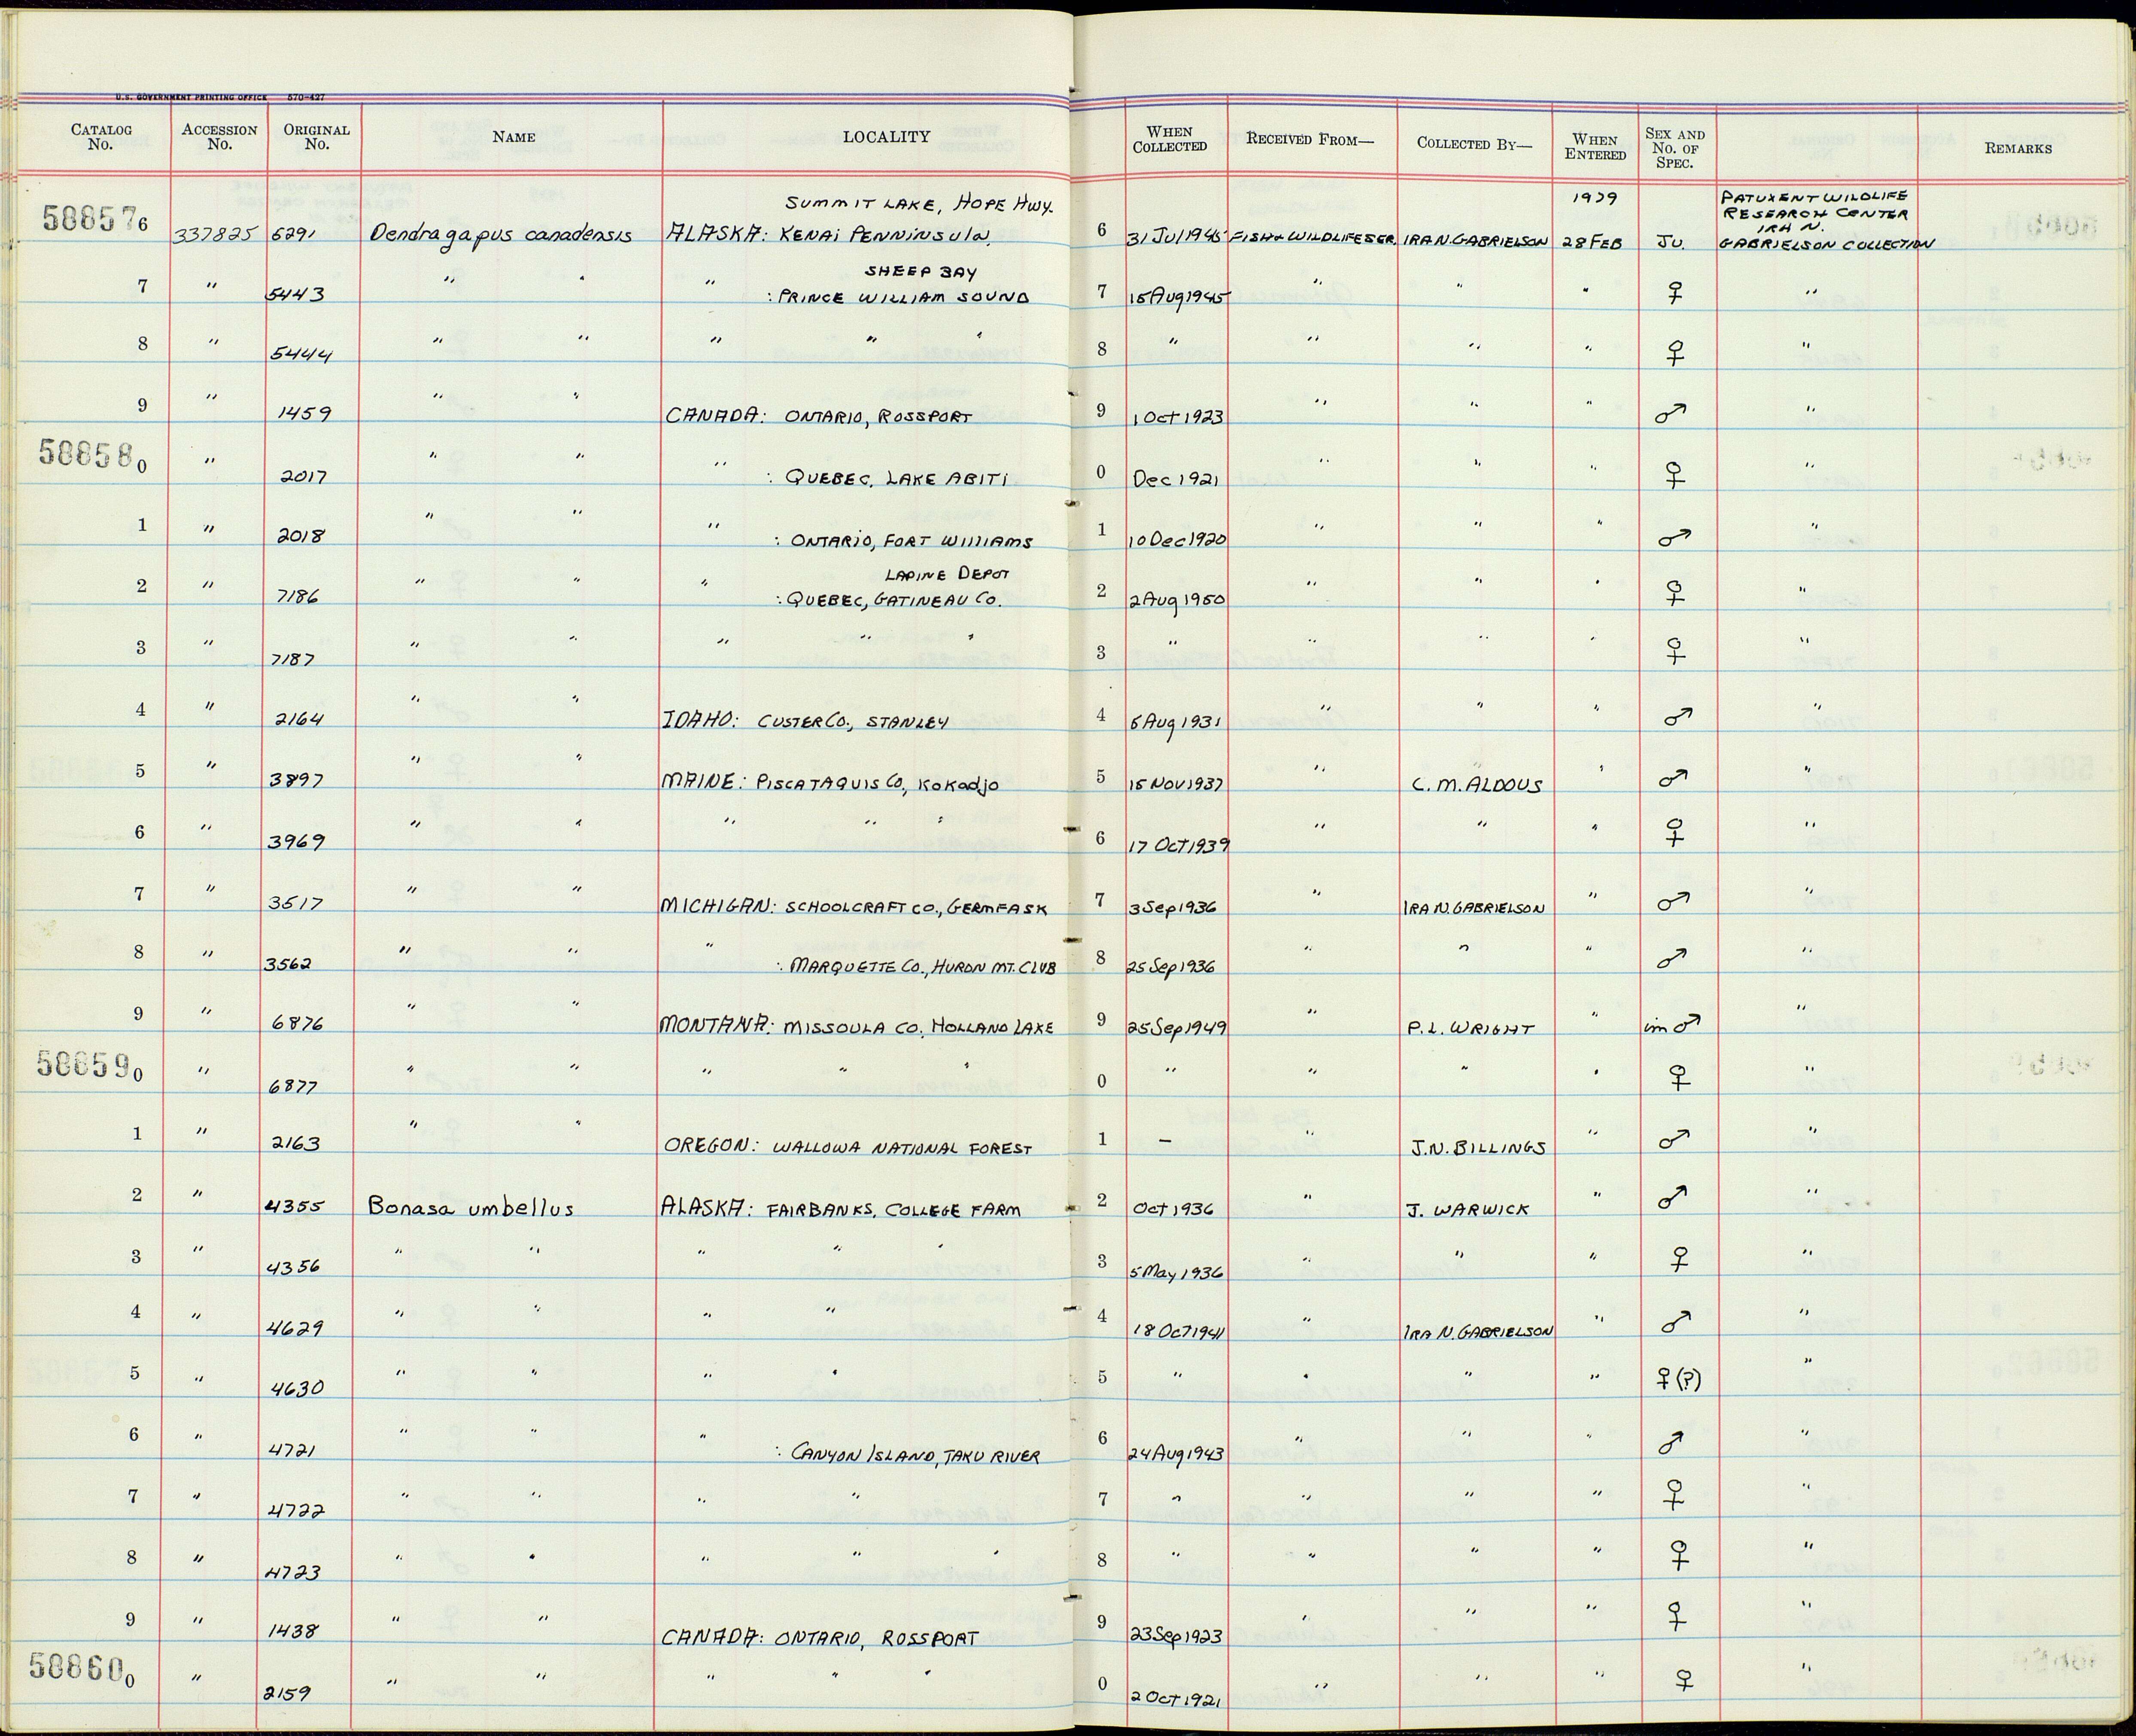 U.S. GOVERNMENT PRINTING OFFICE 570-427
CATALOG No. ACCESSION No. ORIGINAL No. NAME LOCALITY WHEN COLLECTED RECEIVED FROM— COLLECTED BY— WHEN ENTERED SEX AND No. OF SPEC. REMARKS
SUMMIT LAKE, HOPE HWY. 1979 PATUXENT WILDLIFE RESEARCH CENTER IRA N.
588576 337825 6291 Dendragapus canadensis ALASKA: KENAI PENNINSULA 6 31 Jul 1945 FISH & WILDLIFE SER. IRA N. GABRIELSON 28 FEB JU. GABRIELSON COLLECTION
SHEEP BAY
7 " 5443 " " " : PRINCE WILLIAM SOUND 7 15 Aug 1945 " " " ♀ "
8 " 5444 " " " " " 8 " " " " ♀ "
9 " 1459 " " CANADA: ONTARIO, ROSSPORT 9 1 Oct 1923 " " " ♂ "
588580 " 2017 " " " : QUEBEC, LAKE ABITI 0 Dec 1921 " " " ♀ "
1 " 2018 " " " : ONTARIO, FORT WILLIAMS 1 10 Dec 1920 " " " ♂ "
LAPINE DEPOT
2 " 7186 " " " : QUEBEC, GATINEAU CO. 2 2 Aug 1950 " " " ♀ "
3 " 7187 " " " " " 3 " " " " ♀ "
4 " 2164 " " IDAHO: CUSTER CO., STANLEY 4 6 Aug 1931 " " " ♂ "
5 " 3897 " " MAINE: PISCATAQUIS CO, KOKADJO 5 15 NOV 1937 " C. M. ALDOUS " ♂ "
6 " 3969 " " " " " 6 17 OCT 1939 " " " ♀ "
7 " 3517 " " MICHIGAN: SCHOOLCRAFT CO., GERMFASK 7 3 Sep 1936 " IRA N. GABRIELSON " ♂ "
8 " 3562 " " " : MARQUETTE CO., HURON MT. CLUB 8 25 Sep 1936 " " " ♂ "
9 " 6876 " " MONTANA: MISSOULA CO. HOLLAND LAKE 9 25 Sep 1949 " P. L. WRIGHT " im ♂ "
588590 " 6877 " " " " " 0 " " " " ♀ "
1 " 2163 " " OREGON: WALLOWA NATIONAL FOREST 1 — " J. N. BILLINGS " ♂ "
2 " 4355 Bonasa umbellus ALASKA: FAIRBANKS, COLLEGE FARM 2 Oct 1936 " J. WARWICK " ♂ "
3 " 4356 " " " " " 3 5 May 1936 " " " ♀ "
4 " 4629 " " " " 4 18 Oct 1941 " IRA N. GABRIELSON " ♂ "
5 " 4630 " " " " 5 " " " " ♀(?) "
6 " 4721 " " " : CANYON ISLAND, TAKU RIVER 6 24 Aug 1943 " " " ♂ "
7 " 4722 " " " " 7 " " " " ♀ "
8 " 4723 " " " " " 8 " " " " ♀ "
9 " 1438 " " CANADA: ONTARIO, ROSSPORT 9 23 Sep 1923 " " " ♀ "
588600 " 2159 " " " " " 0 2 Oct 1921 " " " ♀ "